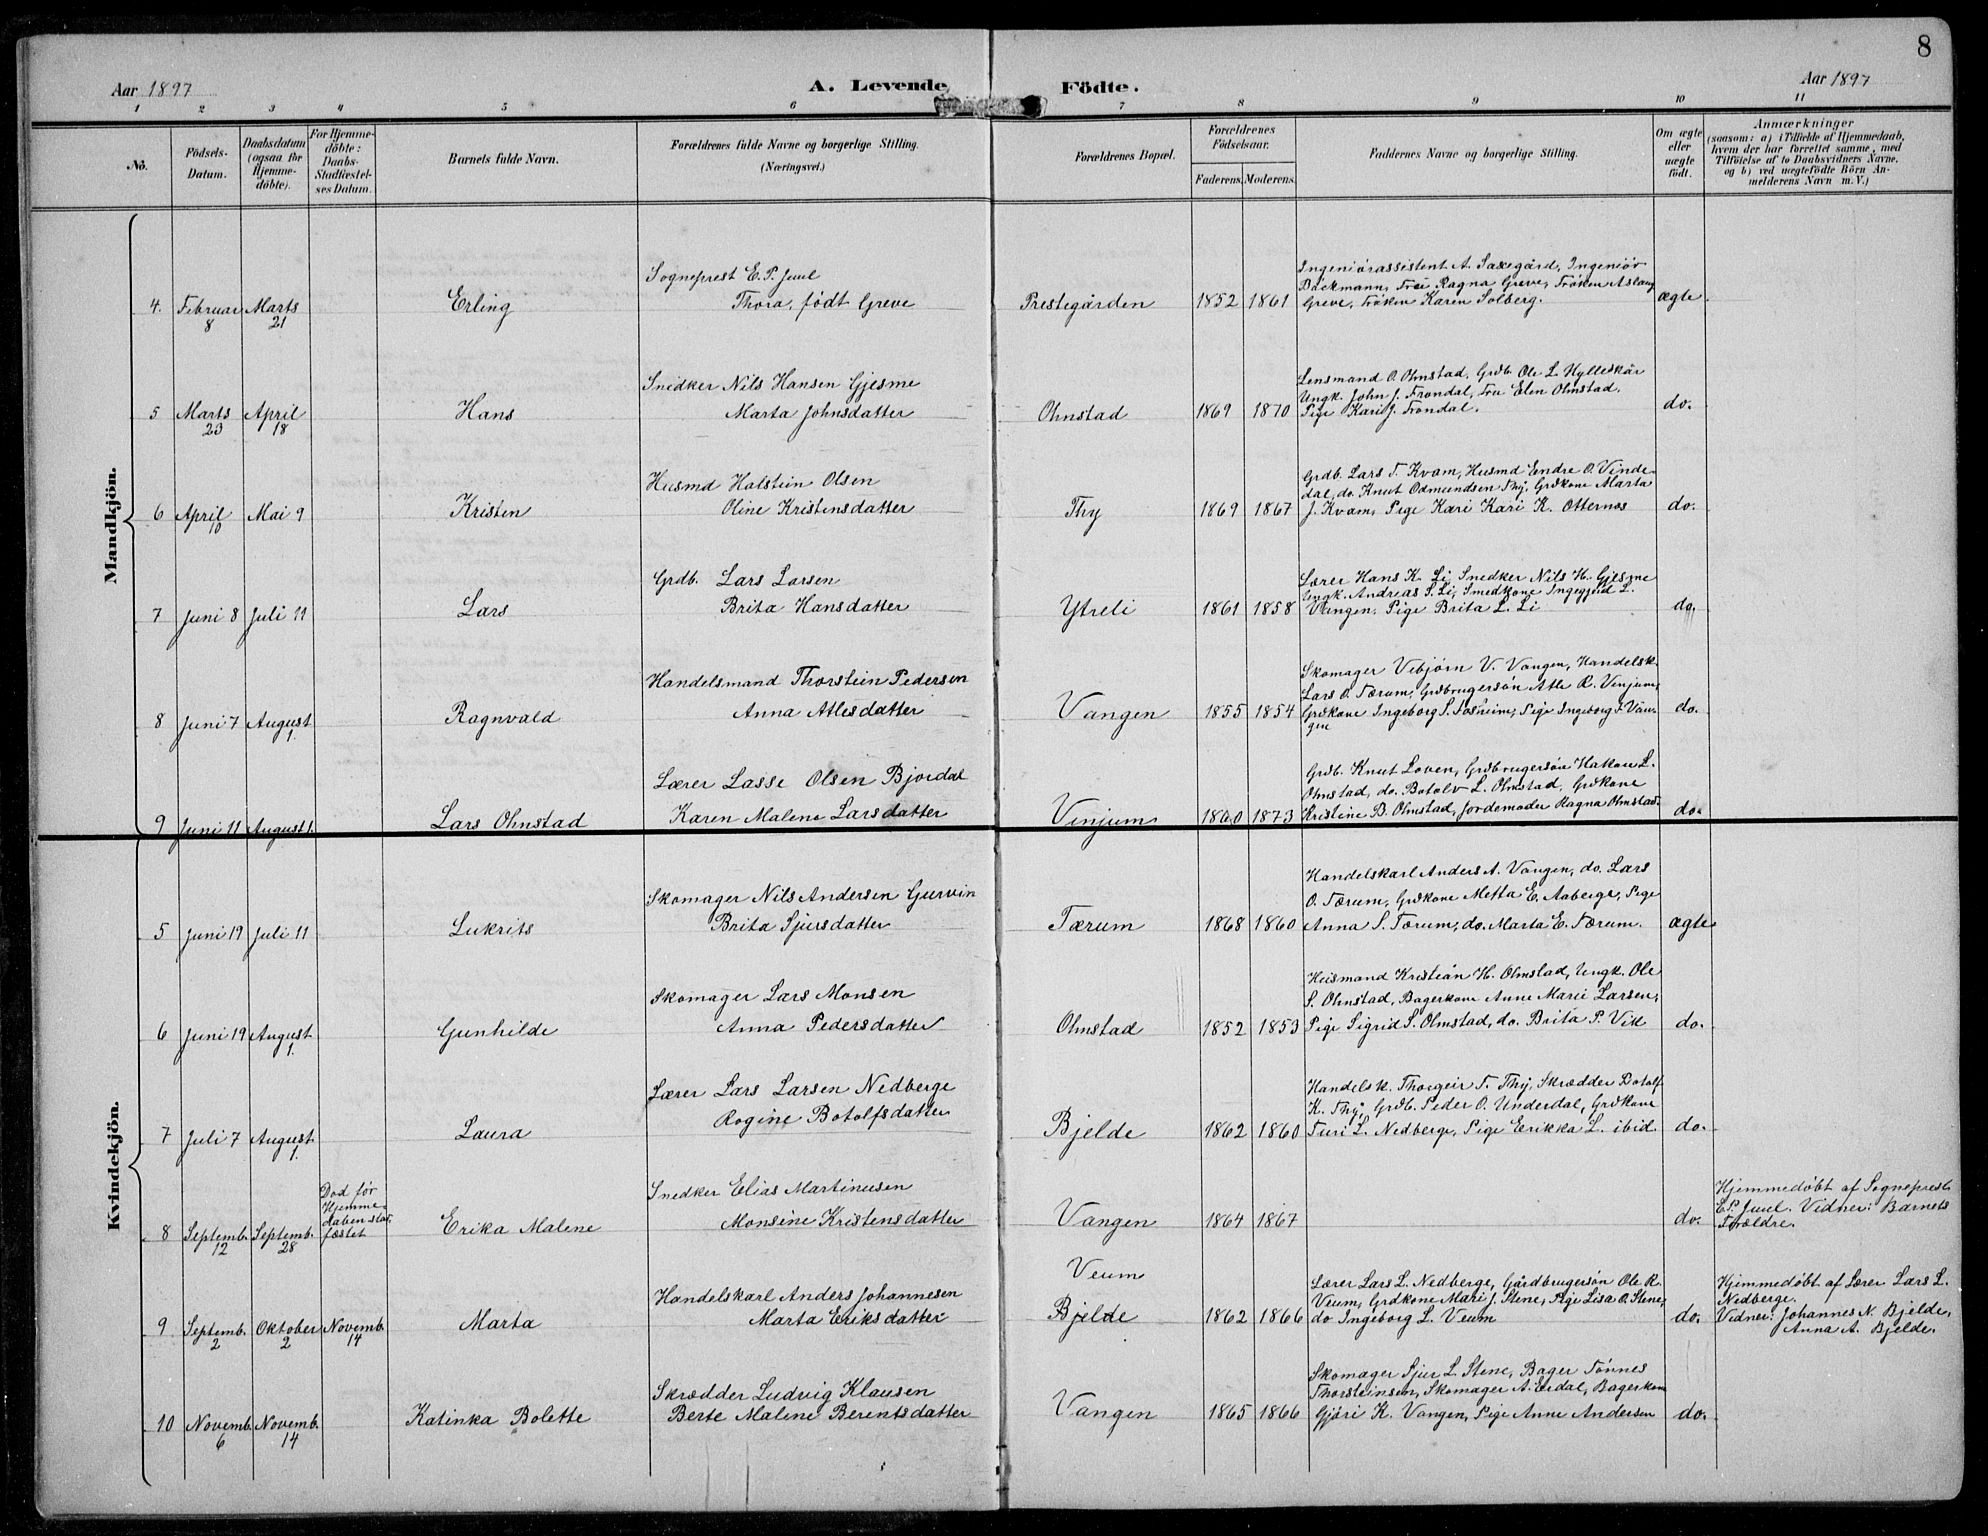 8
Aar 1897
A. Levende Födte.
Aar 1897
1 2 3 4 5 6 7 8 9 10 11
No.
Födsels-
Datum.
Daabsdatum
(ogsaa for
Hjemme-
döbte).
For Hjemme-
döbte:
Daabs-
Stadfæstel-
ses Datum.
Barnets fulde Navn.
Forældrenes fulde Navne og borgerlige Stilling.
(Næringsvei.)
Forældrenes Bopæl.
Forældrenes
Födselsaar.
Faderens. Moderens.
Faddernes Navne og borgerlige Stilling.
Om ægte
eller
uægte
födt.
Anmærkninger
(saasom: a) i Tilfælde af Hjemmedaab,
hvem der har forrettet samme, med
Tilföielse af to Daabsvidners Navne,
og b) ved uægtefödte Börn An-
melderens Navn m. V.)
Mandkjön.
4. Februar 8 Marts 21
Erling
Sogneprest E. P. Juul
Thora, født Greve
Prestegården
1852 1861
Ingeniørassistent A. Saxegård, Ingeniør
Bäckmann, Frøi Ragna Greve, Frøken Aslaug
Greve, Frøken Karen Solberg.
ægte
5 Marts 23 April 18
Hans
Snedker Nils Hansen Gjesme
Marta Johnsdatter
Ohnstad
1869 1870
Lensmand O. Ohnstad, Grdb. Ole L. Hylleskår
Ungk. John J. Frondal, Fru Elen Ohnstad,
Pige Kari J. Frondal.
do.
6 April 10 Mai 9
Kristen
Husmd Halstein Olsen
Oline Kristensdatter
Thy
1869 1867
Grdb. Lars T. Kvam, Husmd Endre O. Vinde-
dal, do. Knut Odmundsen Thy, Grdkone Marta
J. Kvam, Pige Kari Kari K. Otternes
do.
7 Juni 8 Juli 11
Lars
Grdb. Lars Larsen
Brita Hansdatter
Ytreli
1861 1858
Lærer Hans K. Li, Snedker Nils H. Gjesme
Ungk. Andreas S. Li, Smedkone Ingegjerd L.
Vangen, Pige Brita L. Li
do.
8 Juni 7 August 1.
Ragnvald
Handelsmand Thorstein Pedersen
Anna Atlesdatter
Vangen
1855 1854
Skomager Vebjørn V. Vangen, Handelsk.
Lars O. Tærum, Grdbrugersøn Atle R. Vinjum,
Grdkone Ingeborg S. Fosheim, Pige Ingeborg F. Van-
gen
do.
9 Juni 11 August 1.
Lars Ohnstad
Lærer Lasse Olsen Bjordal
Karen Malene Larsdatter
Vinjum
1860 1873
Grdb. Knut Loven, Grdbrugersøn Hakon L.
Ohnstad, do. Botolv L. Ohnstad, Grdkone
Kristine B. Ohnstad, Jordemoder Ragna Ohnstad.
do.
Kvindekjön.
5 Juni 19 Juli 11
Lukrits
Skomager Nils Andersen Gurvin
Brita Sjursdatter
Tærum
1868 1860
Handelskarl Anders A. Vangen, do. Lars
O. Tærum, Grdkone Metta E. Aaberge, Pige
Anna S. Tærum, do. Marta E. Tærum.
ægte
6 Juni 19 August 1.
Gunhilde
Skomager Lars Monsen
Anna Pedersdatter
Ohnstad
1852 1853
Husmand Kristian H. Ohnstad, Ungk. Ole
S. Ohnstad, Bagerkone Anne Marie Larsen,
Pige Sigrid S. Ohnstad, do. Brita P. Vik
do.
7 Juli 7 August 1.
Laura
Lærer Lars Larsen Nedberge
Rogine Botolfsdatter
Bjelde
1862 1860
Handelsk. Thorgeir T. Thy, Skrædder Botolf
K. Thy, Grdb. Peder O. Underdal, Grdkone
Turi L. Nedberge, Pige Erikka L. ibid
do.
8 Septemb. 12 Septemb. 28
Død før
Hjemme-
daben stad-
fæstet
Erika Malene
Snedker Elias Martinusen
Monsine Kristensdatter
Vangen
1864 1867
do.
Hjemmedøbt af Sogneprest
E. P. Juul. Vidner: Barnets
Forældre.
9 Septemb. 2 Oktober 2 Novemb. 14
Marta
Handelskarl Anders Johannesen
Marta Eriksdatter
Veum
Bjelde
1862 1866
Lærer Lars L. Nedberge, Gårdbrugersøn Ole R.
Veum, Grdkone Mari J. Stene, Pige Lisa O. Stene,
do Ingeborg L. Veum
do.
Hjemmedøbt af Lærer Lars L.
Nedberge.
Vidner: Johannes N. Bjelde,
Anna A. Bjelde.
10 Novemb. 6 Novemb. 14
Katinka Bolette
Skrædder Ludvig Klausen
Berte Malene Berentsdatter
Vangen
1865 1866
Skomager Sjur L. Stene, Bager Tønnes
Thorsteinsen, Skomager A. Erdal, Bagerkone
Gjøri K. Vangen, Pige Anne Andersen
do.